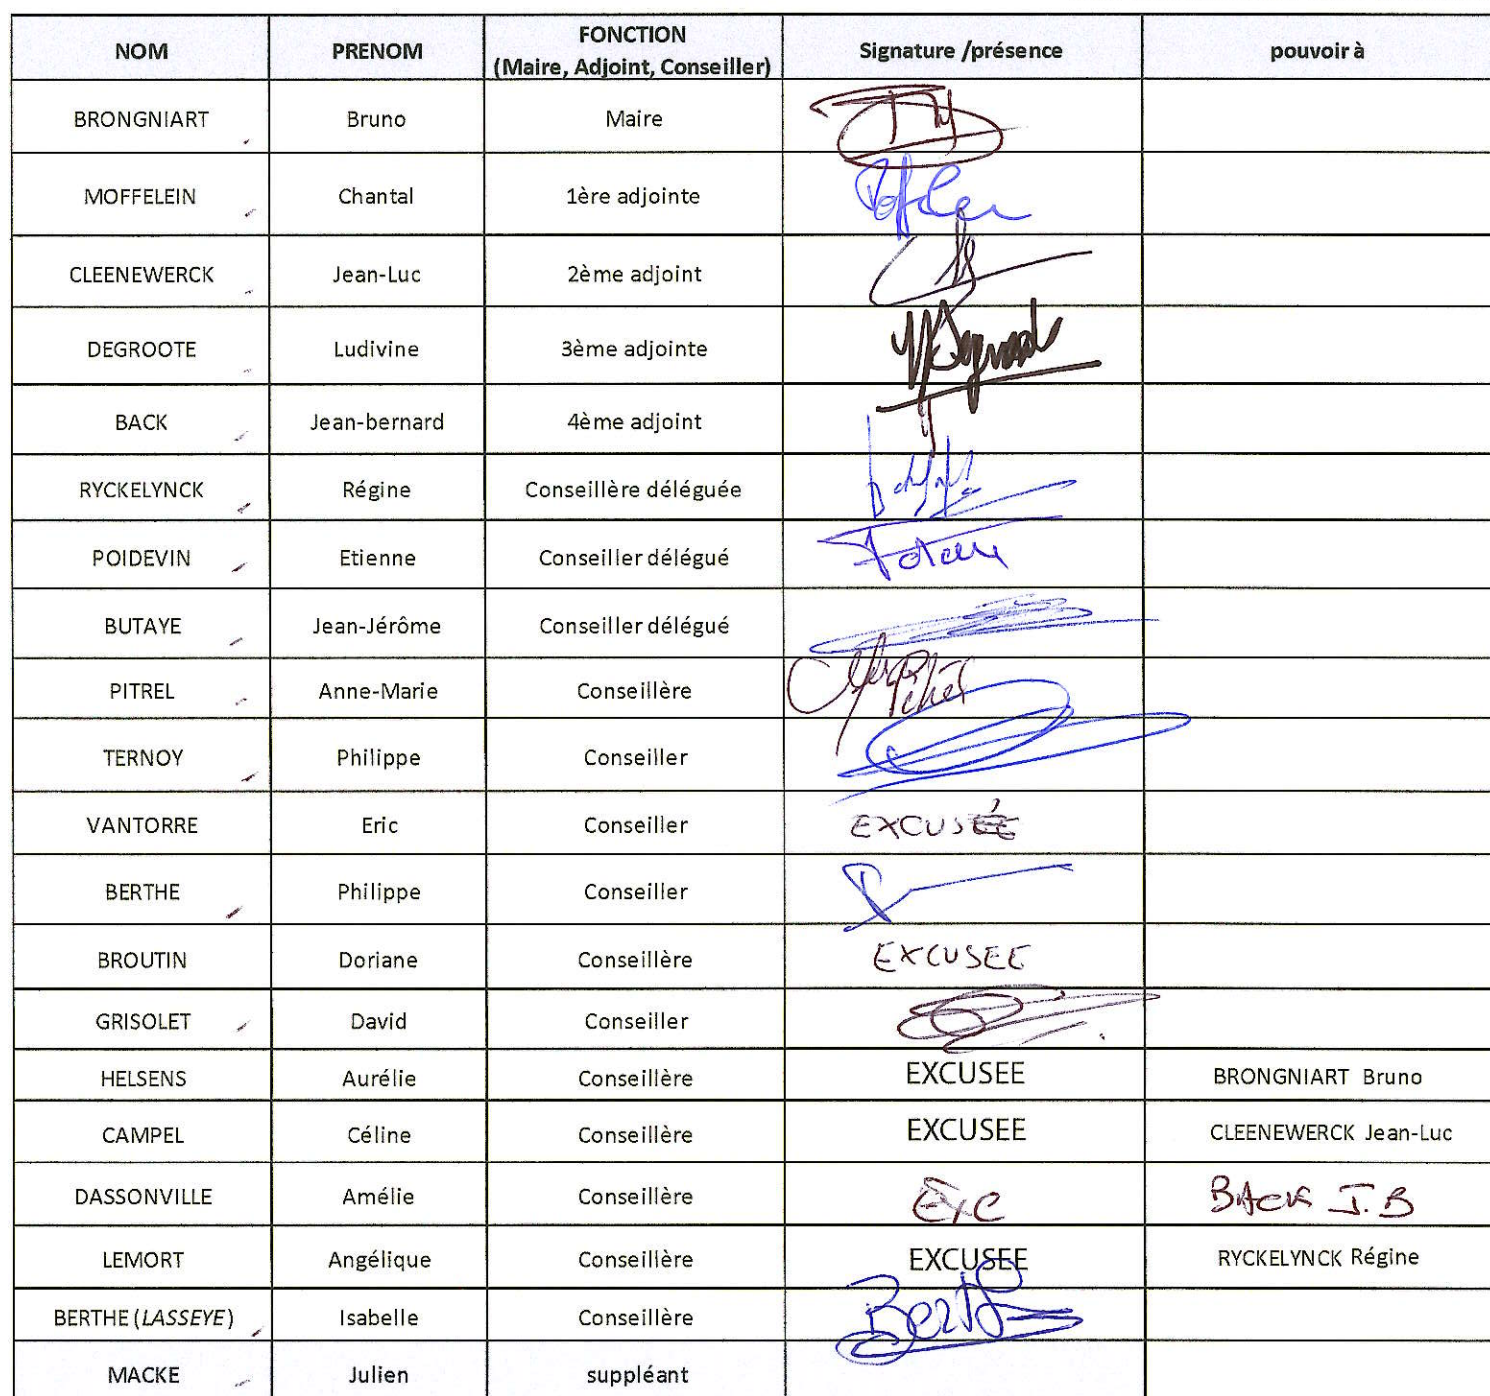 NOM PRENOM FONCTION (Maire, Adjoint, Conseiller) Signature /présence pouvoir à
BRONGNIART Bruno Maire
MOFFELEIN Chantal 1ère adjointe
CLEENEWERCK Jean-Luc 2ème adjoint
DEGROOTE Ludivine 3ème adjointe
BACK Jean-bernard 4ème adjoint
RYCKELYNCK Régine Conseillère déléguée
POIDEVIN Etienne Conseiller délégué
BUTAYE Jean-Jérôme Conseiller délégué
PITREL Anne-Marie Conseillère
TERNOY Philippe Conseiller
VANTORRE Eric Conseiller EXCUSÉ
BERTHE Philippe Conseiller
BROUTIN Doriane Conseillère EXCUSEE
GRISOLET David Conseiller
HELSENS Aurélie Conseillère EXCUSEE BRONGNIART Bruno
CAMPEL Céline Conseillère EXCUSEE CLEENEWERCK Jean-Luc
DASSONVILLE Amélie Conseillère EXC BACK J.B
LEMORT Angélique Conseillère EXCUSEE RYCKELYNCK Régine
BERTHE (LASSEYE) Isabelle Conseillère
MACKE Julien suppléant